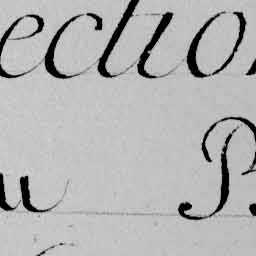 ectio
u P